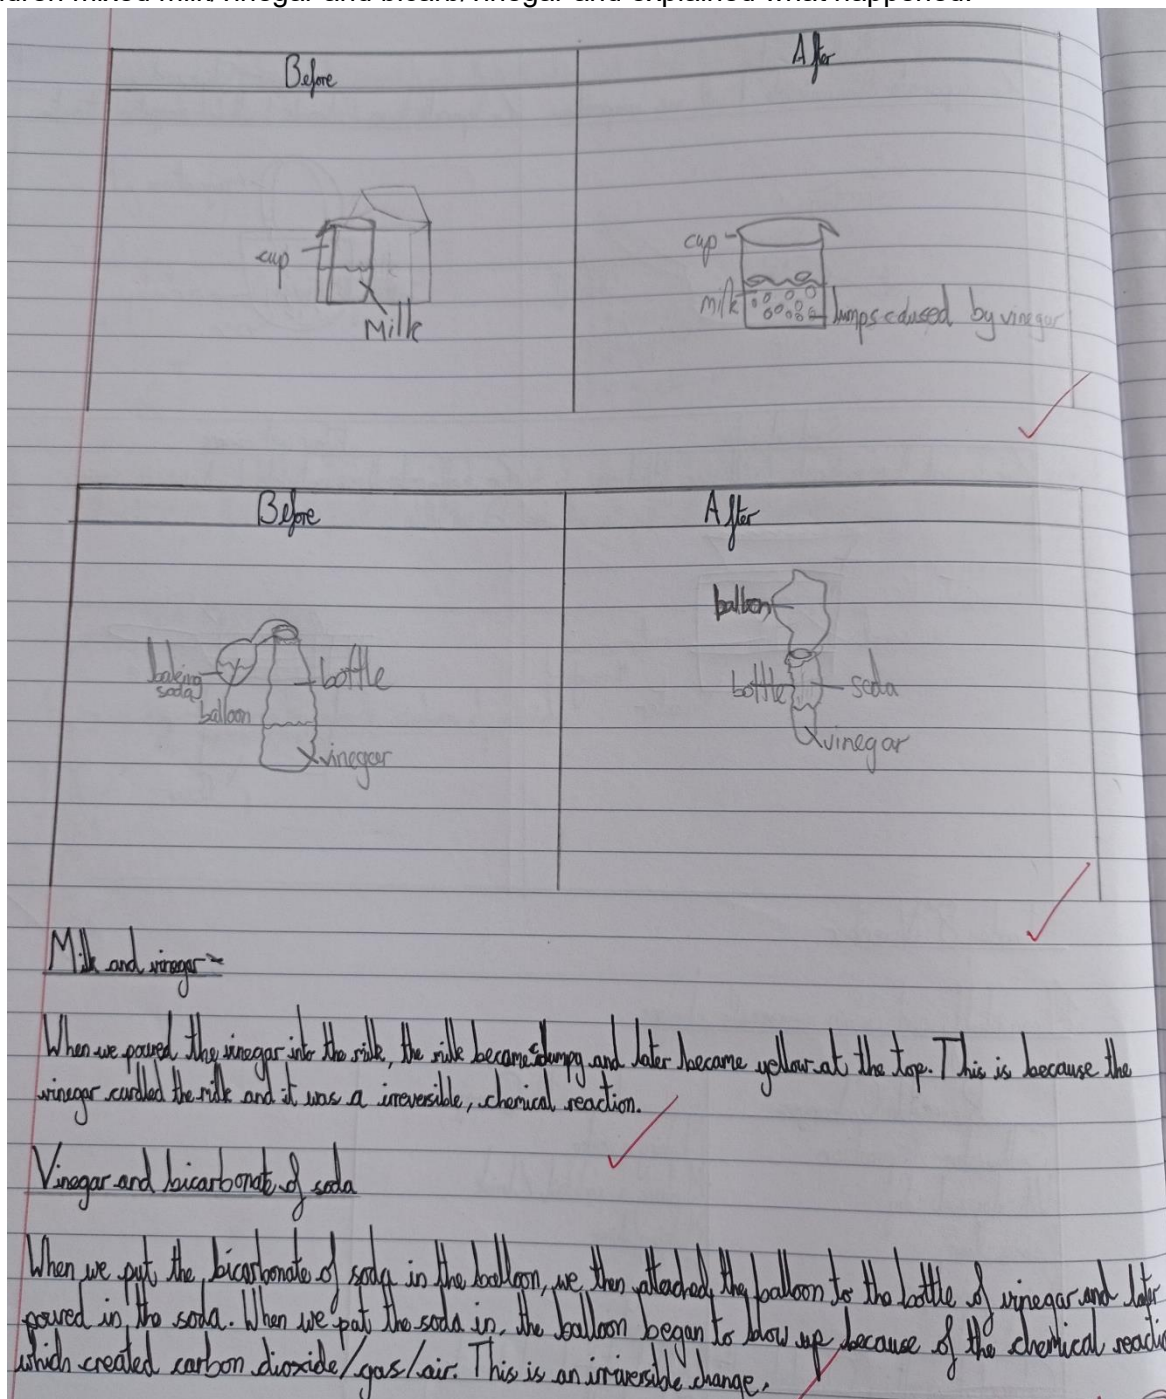 mixed milk/vinegar and bicarb/vinegar and explained what happened.
Before
After
cup
Milk
cup
milk
lumps caused by vinegar
Before
After
baking
soda
balloon
bottle
vinegar
balloon
bottle
soda
vinegar
Milk and vinegar
When we poured the vinegar into the milk, the milk became lumpy and later became yellow at the top. This is because the
vinegar curdled the milk and it was a irreversible, chemical reaction.
Vinegar and bicarbonate of soda
When we put the bicarbonate of soda in the balloon, we then attached the balloon to the bottle of vinegar and later
poured in the soda. When we put the soda in, the balloon began to blow up because of the chemical
which created carbon dioxide/gas/air. This is an change.